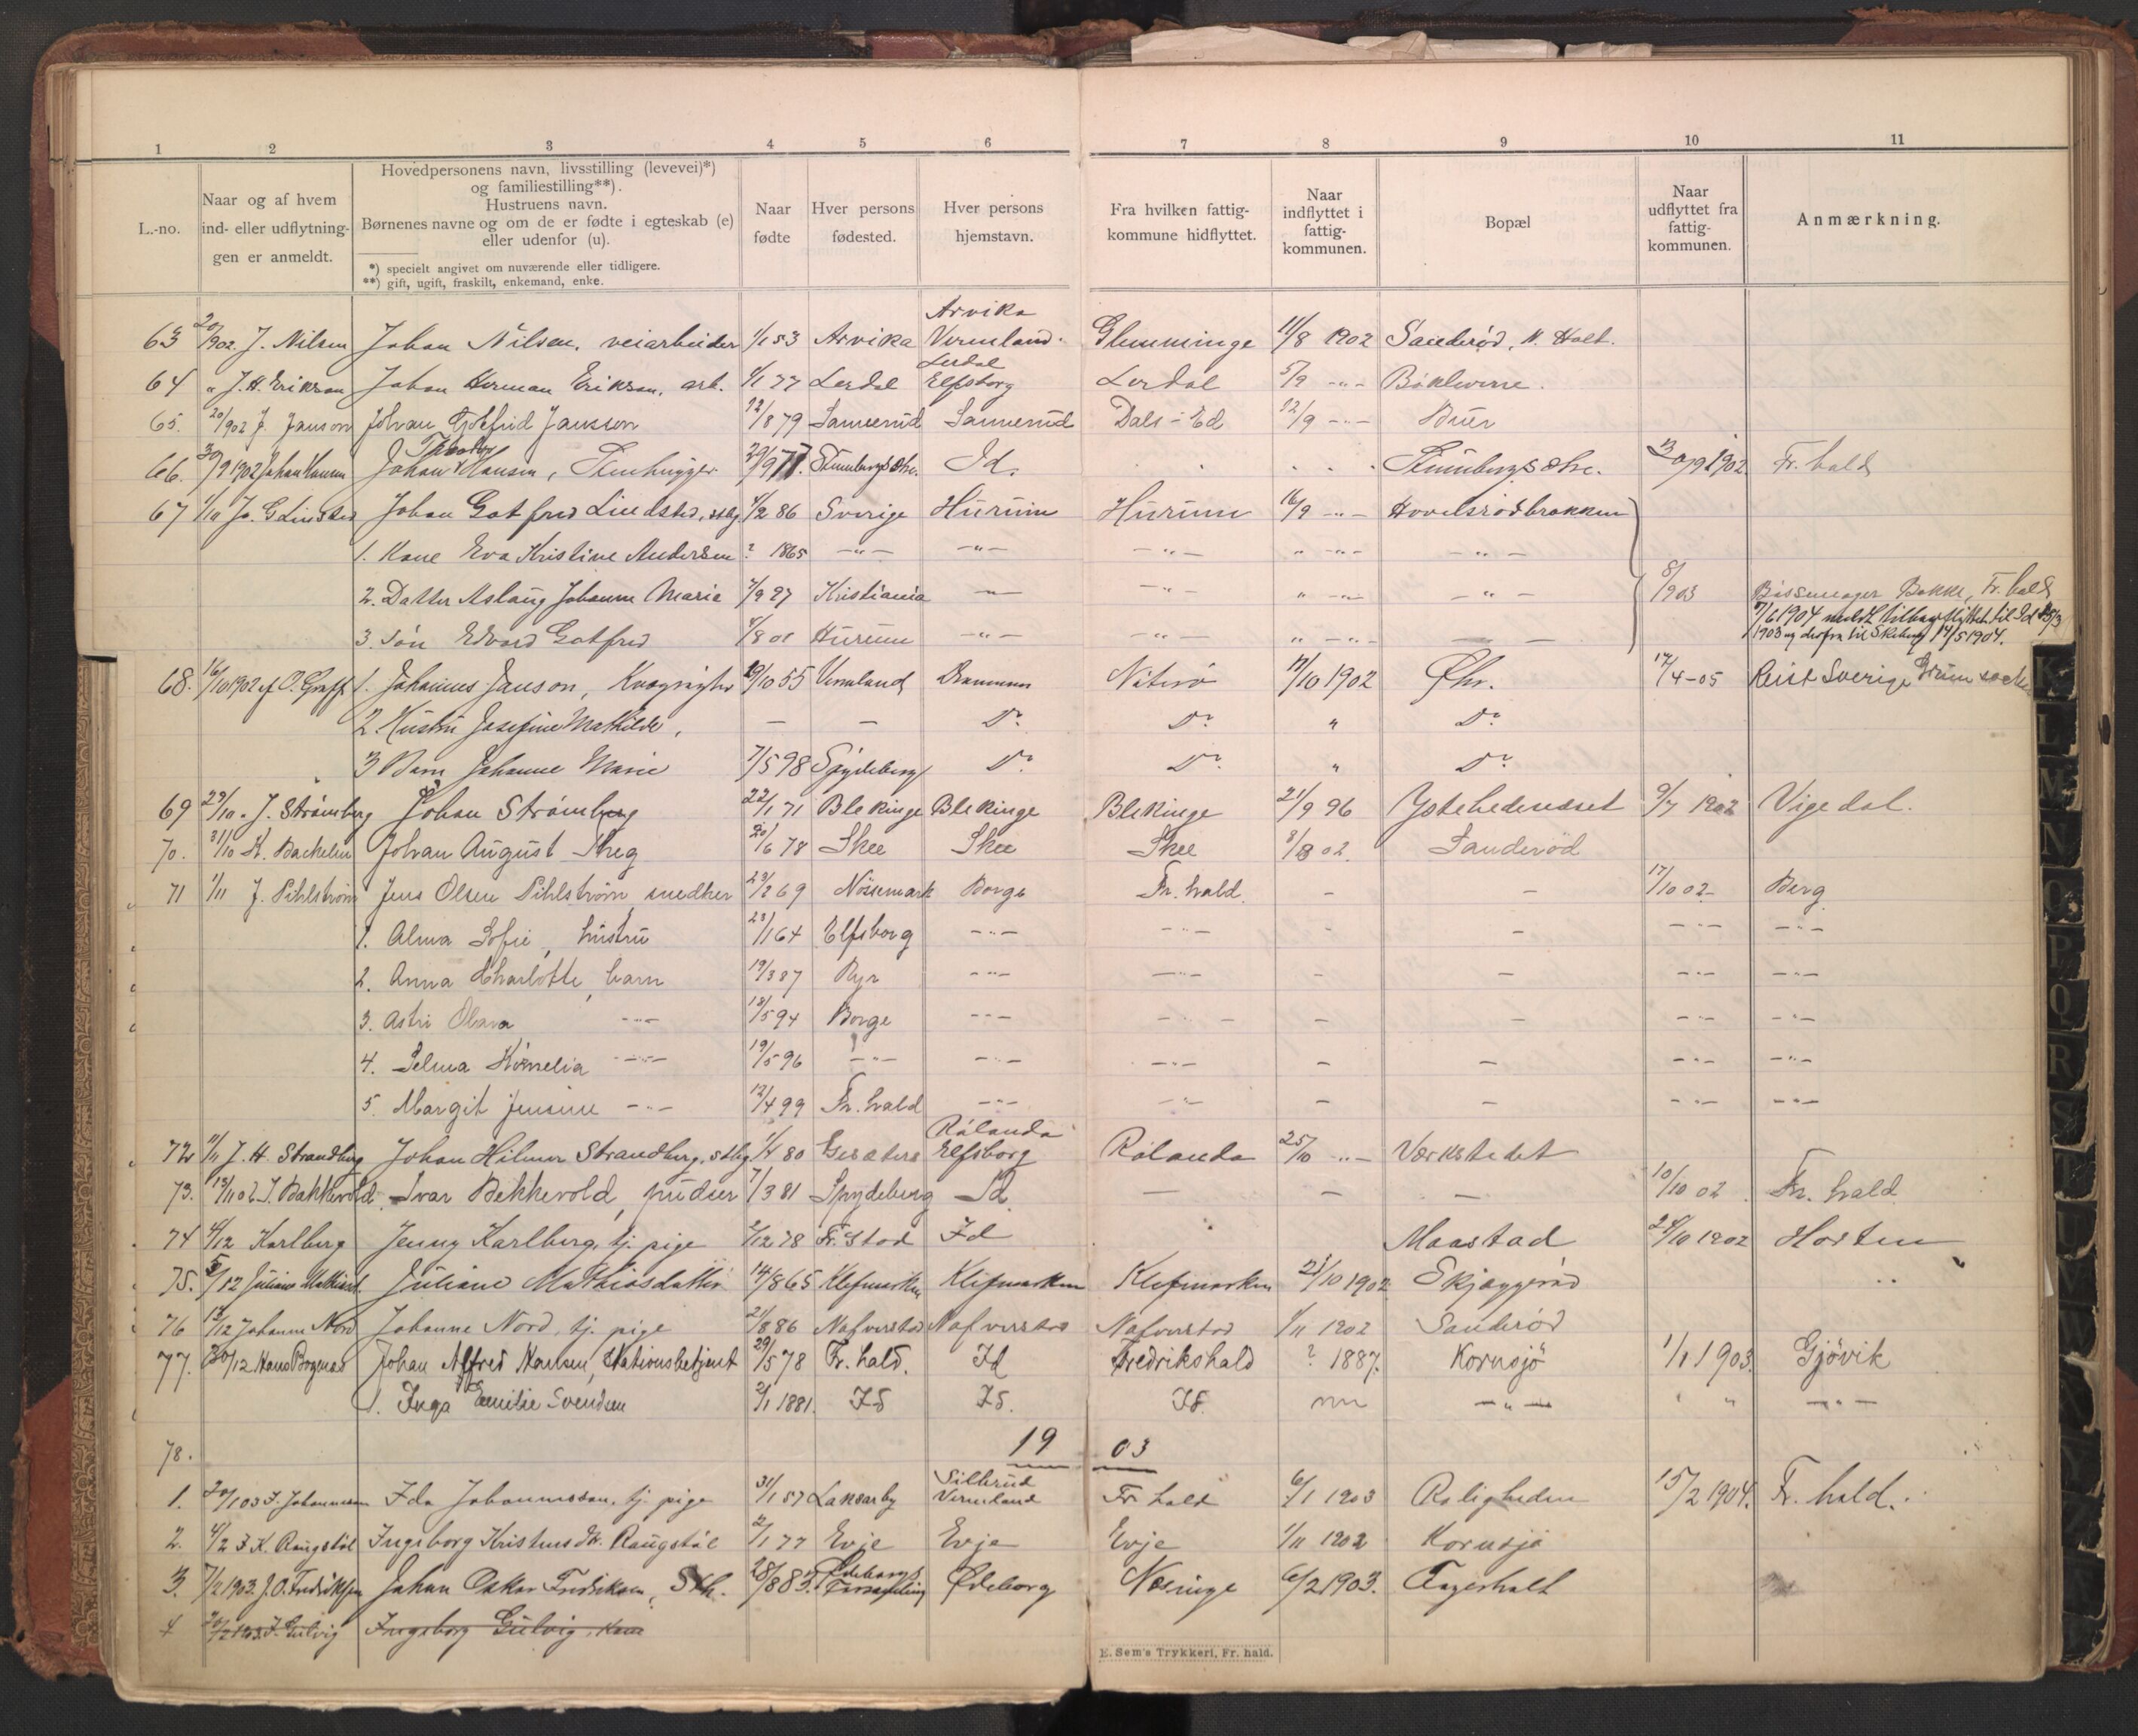 1 2 3 4 5 6 7 8 9 10 11
L.-no.
Naar og af hvem ind- eller udflytningen er anmeldt.
Hovedpersonens navn, livsstilling (levevei)*) og familiestilling**).
Hustruens navn.
Børnenes navne og om de er fødte i egteskab (e) eller udenfor (u).
*) specielt angivet om nuværende eller tidligere.
**) gift, ugift, fraskilt, enkemand, enke.
Naar fødte
Hver persons fødested.
Hver persons hjemstavn.
Fra hvilken fattigkommune hidflyttet.
Naar indflyttet i fattigkommunen.
Bopæl
Naar udflyttet fra fattigkommunen.
Anmærkning.
63 20/9 902. J. Nilsen Johan Nilsen, veiarbeider 1/1 53 Arvika Arvika Vermland Glemminge 11/8 1902 Sanderød, N. Holt.
64 " J. H. Erikson Johan Herman Erikson, arb. 1/1 77 Lerdal Lerdal Elfsborg Lerdal 5/9 -"- Bøklevene.
65. 20/902 J. Janson Johan Gotfrid Janson 12/8 79 Sannerud Sannerud Dals-Ed 12/9 -"- Buer
66. 30/9 1902 Johan Hansen Johan Theodor Hansen, Stenhugger 29/9 77. Id. 30/9 1902 Fr. hald
67 1/11 Jo. G. Lindsted Johan Gotfred Lindsted, stbg 4/2 86 Sverige Hurum Hurum 16/9 -"- Hovelsrødbrakken
1. Kone Eva Kristine Andersen ? 1865 -"- -"- -"- " -"- -"-
2. Datter Aslaug Johanne Marie 7/9 97 Kristiania -"- -"- " -"- -"- 8/ 903 Bakke, Fr. hald
3. Søn Edvard Gotfred 4/8 01 Hurum -"- -"- " -"- — 7/6 1904 meldt tilbageflyttet til Id 15/3 1903 og derfra til Skeberg 14/5 1904.
68. 16/10 1902 af O. Graff 1. Johannes Janson, Kvægrøgter 19/10 55 Vermland Drammen Nøterø 17/10 1902 Øhr. 17/4-05 Reist Sverige Grums socken
2 Hustru Josefine Mathilde, — — Do. Do. " Do.
3 Barn Johanne Marie 7/5 98 Spydeberg Do. Do. " Do.
69 29/10 " J. Strömberg Johan Strömberg 22/1 71 Blekinge Blekinge Blekinge 21/9 96 Ystehedenæset 9/7 1902 Vigedal.
70. 31/10 K. Backelin Johan August Skeg 20/6 78 Skee Skee Skee 8/8 02. Sanderød
71 1/11 J. Pihlstrøm Jens Olsen Pihlstrøm, snedker 23/2 69 Nössemark Borge Fr. hald. - - 17/10 02 Berg
1. Alma Sofie, hustru 28/1 64 Elfsborg -"- -"- - - -"- -"-
2. Anna Charlotte, barn 19/3 87 Ryr -"- -"- - - -"- -"-
3. Astri Olava -"- 18/5 94 Borge -"- -"- - - -"- -"-
4. Selma Kornelia -"- 19/5 96 -"- -"- -"- - - -"- -"-
5. Margit Jensine -"- 12/4 99 Fr. hald -"- -"- - - -"- -"-
72 11/11 J. H. Strandberg Johan Hilmer Strandberg, stbg 1/4 80 Gesäter Rölanda Elfsborg Rölanda 25/10 -"- Værkstedet
73. 13/11 02 I. Bakkevold Ivar Bekkevold, pudser 7/3 81 Spydeberg Id — — — 10/10 02 Fr. hald
74 4/12 Karlberg Jenny Karlberg, tj. pige 2/12 78 Fr. Stad Id Maastad 24/10 1902 Horten
75. 5/12 Juliane Mathiasd. Juliane Mathiasdatter 14/8 65 Klefmarken Klefmarken Klefmarken 21/10 1902 Skjæggerød
76 13/12 Johanne Nord Johanne Nord, tj. pige 21/8 86 Nafverstad Nafverstad Nafverstad 1/11 1902 Sanderød
77. 30/12 Hans Bogenæs Johan Alfred Karlsen, Stationsbetjent 29/5 78 Fr. hald. Id Fredrikshald ? 1887. Kornsjö 1/1 1903. Gjøvik
1. Inga Emilie Svendsen 2/1 1881. Id Id. Id. -"- " " -"-
78.
1903
1. 20/1 03 I. Johannesson Ida Johannesson, tj. pige 31/1 57 Laxarby Sillerud Vermland Fr hald 6/1 1903 Roligheden 15/2 1904. Fr. hald.
2. 4/2 3 K. Raugstøl Ingeborg Kristensdtr. Raugstøl 2/1 77 Evje Evje Evje 1/11 1902 Kornsjø
3. 7/2 1903. J. O. Fredriksen Johan Oskar Fredriksen, Sth. 28/8 83. Ødeborgs Forsamling Ødeborg Næsinge 6/2 1903. Fagerholt
4 20/2 1903 I. Gulvig Ingeborg Gulvig, Kone
E. Sem's Trykkeri, Fr. hald.
K L M N O P Q R S T